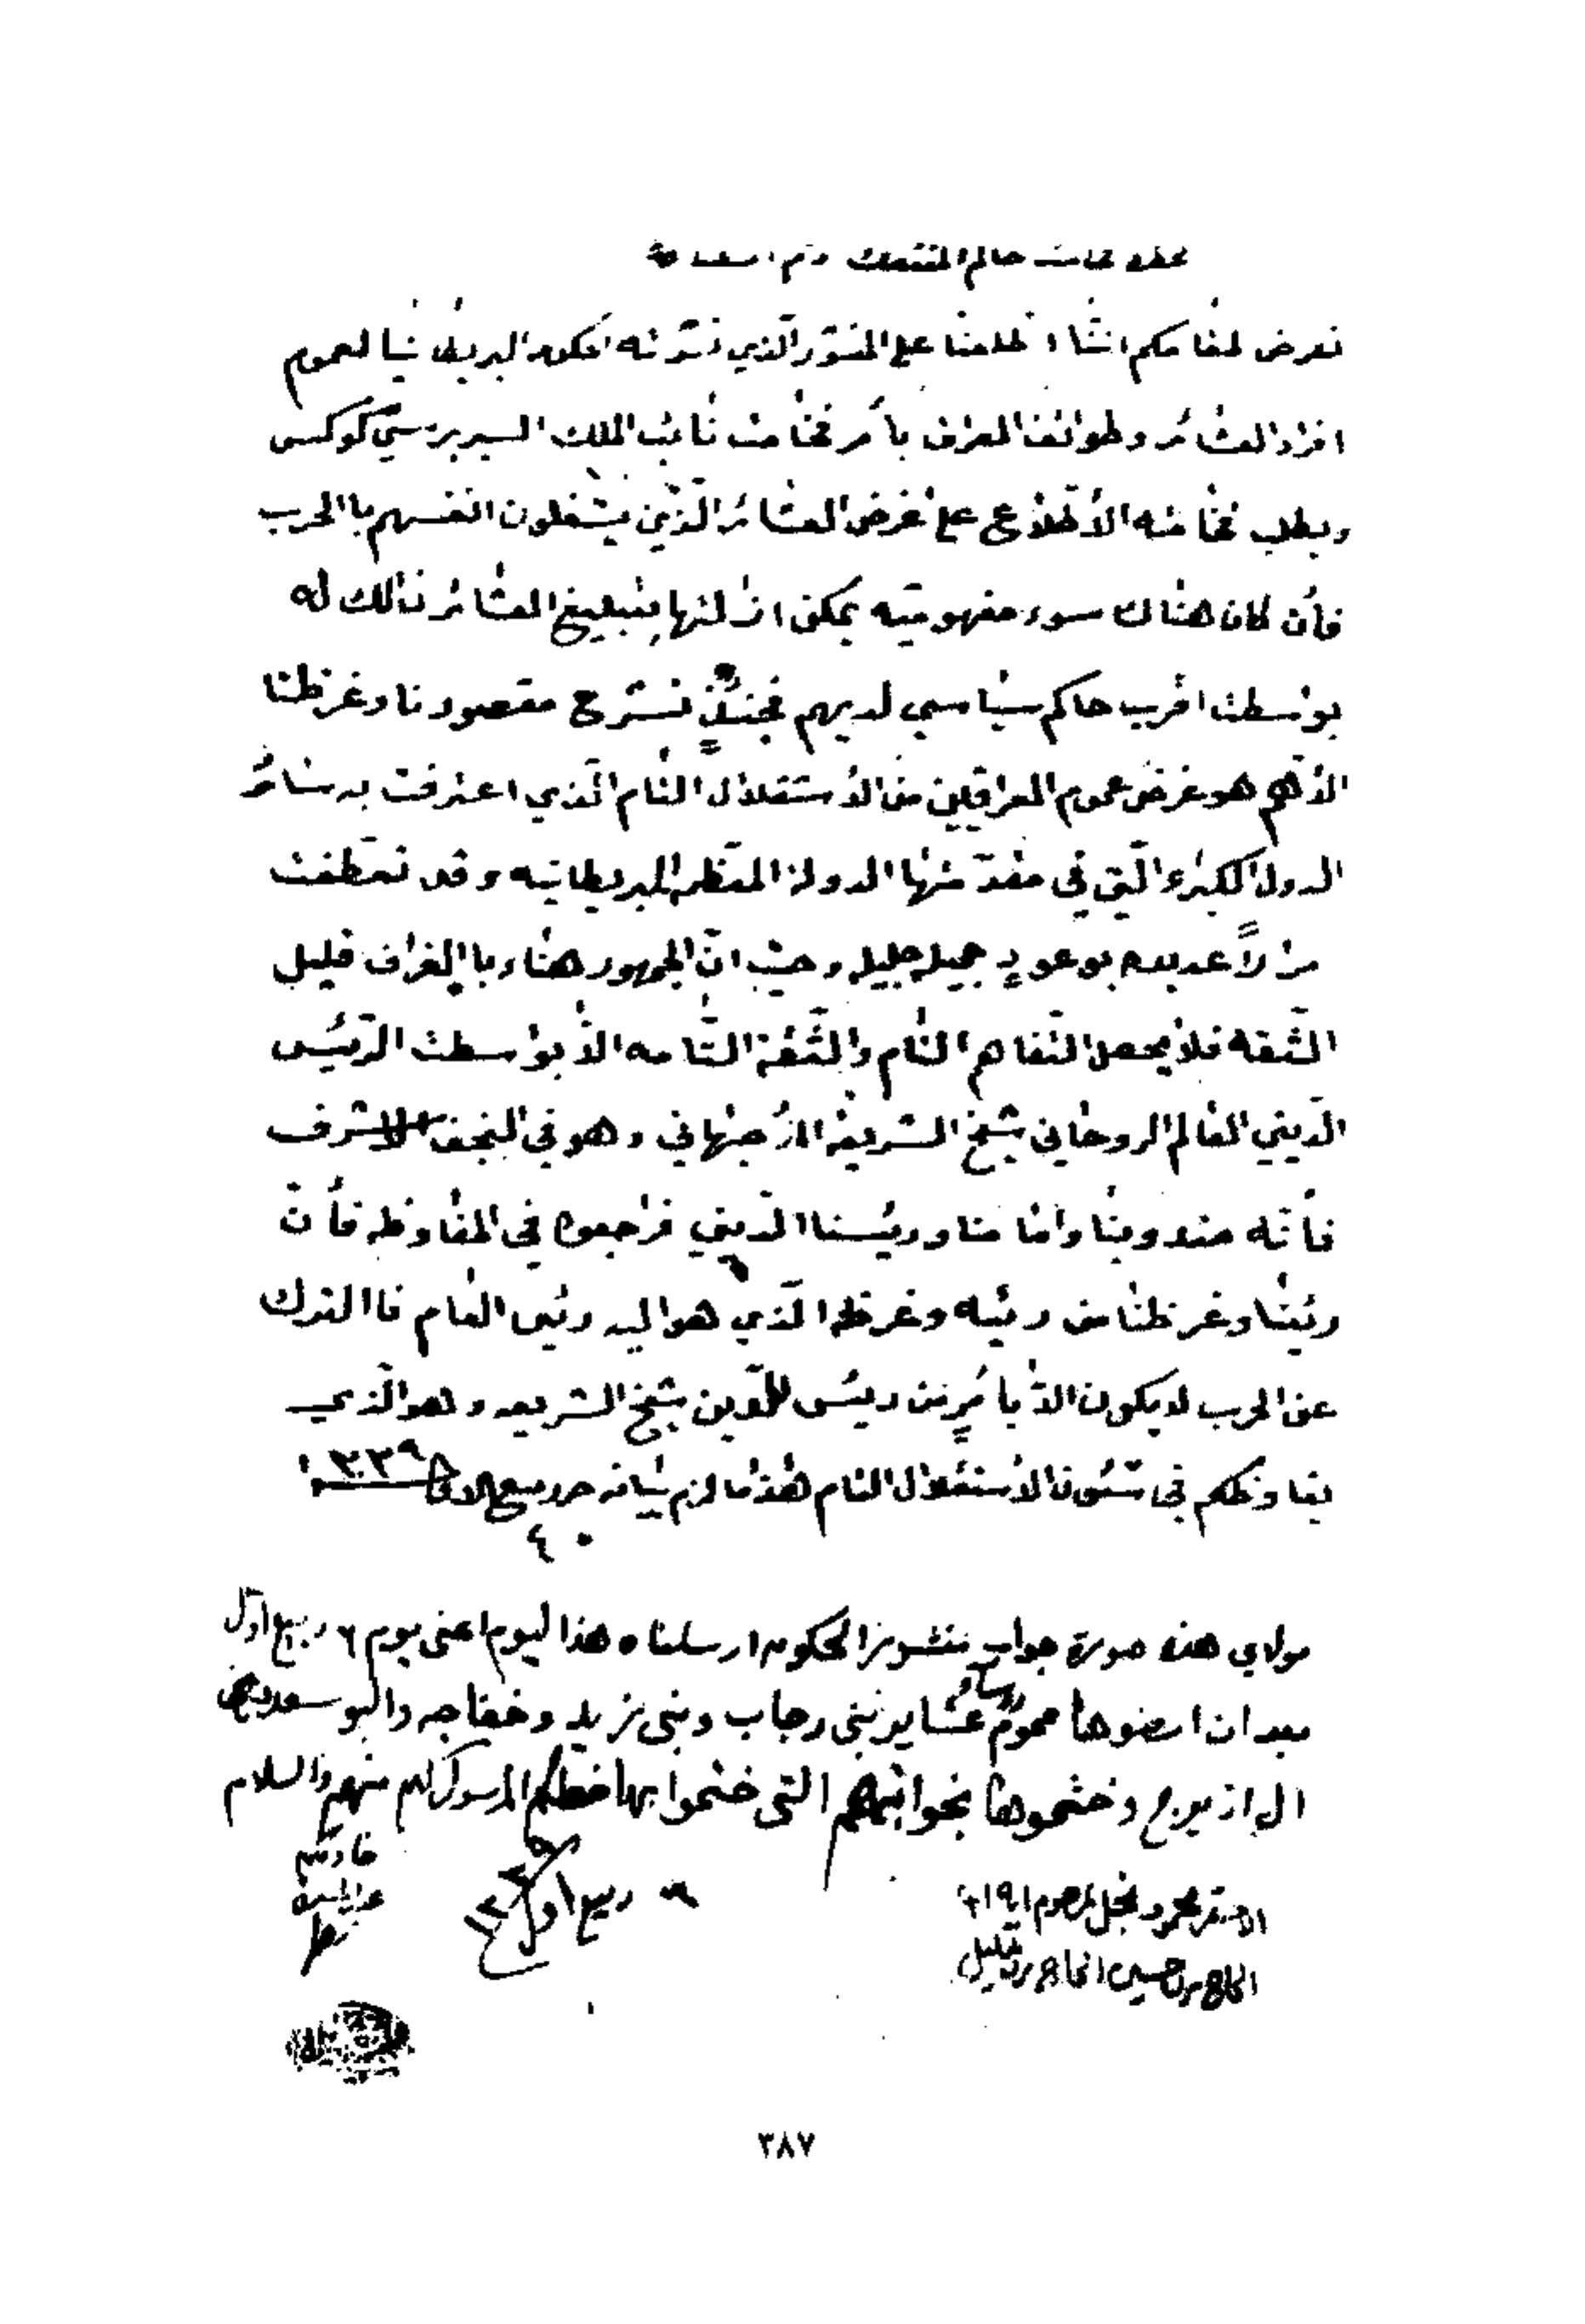 حاكم المنتفك دام
نعرض لمقامكم انّنا اطلعنا على المنشور الّذي نشرته الحكومه البريطانيا لعموم
افراد العشائر وطوائف العراق بأمر فخامت نائب الملك السير برسي كوكس
ويطلب فخامته الأطلاع على غرض العشائر الّذين يشغلون انفسهم با الحرب
فأن كان هناك سوء مفهوميّه يمكن ازالتها بتبليغ العشائر ذالك له
بواسطت اقرب حاكم سياسي لديهم فحينئذٍ نشرح مقصودنا وغرظنا
الأهم هو غرض عموم العراقيين من الأستقلال التام الّذي اعترفت به سائر
الدول الكبرى الّتي في مقدّمتها الدولة المعظمه البريطانيّه وقد تعطّفت
مراراً عديده بوعودٍ جميله جليله وحيث انّ الجمهور هنا وبا الغراف قليل
الثّقه فلا يحصل التّفاهم التام والثّقة التّامه الّا بواسطت الرّئيس
الدّيني العالم الروحاني شيخ الشريعة الأصبهاني وهو في النجف الاشرف
فأنّه مندوبنا وامامنا ورئيسنا الدّيني فراجعوه في المفاوظه فأن
رئينا وغرظنا من رئيه وغرظه الّذي هو اليه رئي العام فا الترك
عن الحرب لا يكون الّا بأمرٍ من رئيس الدّين شيخ الشريعه وهو الّذي
يفاوظكم في شئون الأستقلال التام هذا ما لزم بيانه حرر ربيع الاول ١٣٣٩
٤
مولاي هذه صورة جواب منشور الحكومه ارسلناه هذا اليوم اعني يوم ٦ ربيع اول
بعد ان امضوها عموم رؤساء عشاير بني ركاب وبني زيد وخفاجه والبو سعد
ال ازيرج وختموها بخواتيمهم التي ختموا بها المرسول لكم منهم والسلام
ربيع اول
محمود نجل المرحوم
الحاج حسين الحاج
٣٨٧